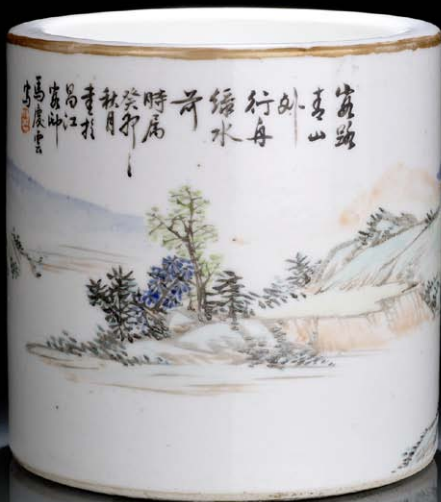 客路
青山
外
行舟
綠水
前
時属
癸卯
秋月
畫於
昌江
客邸
馬慶雲
寫